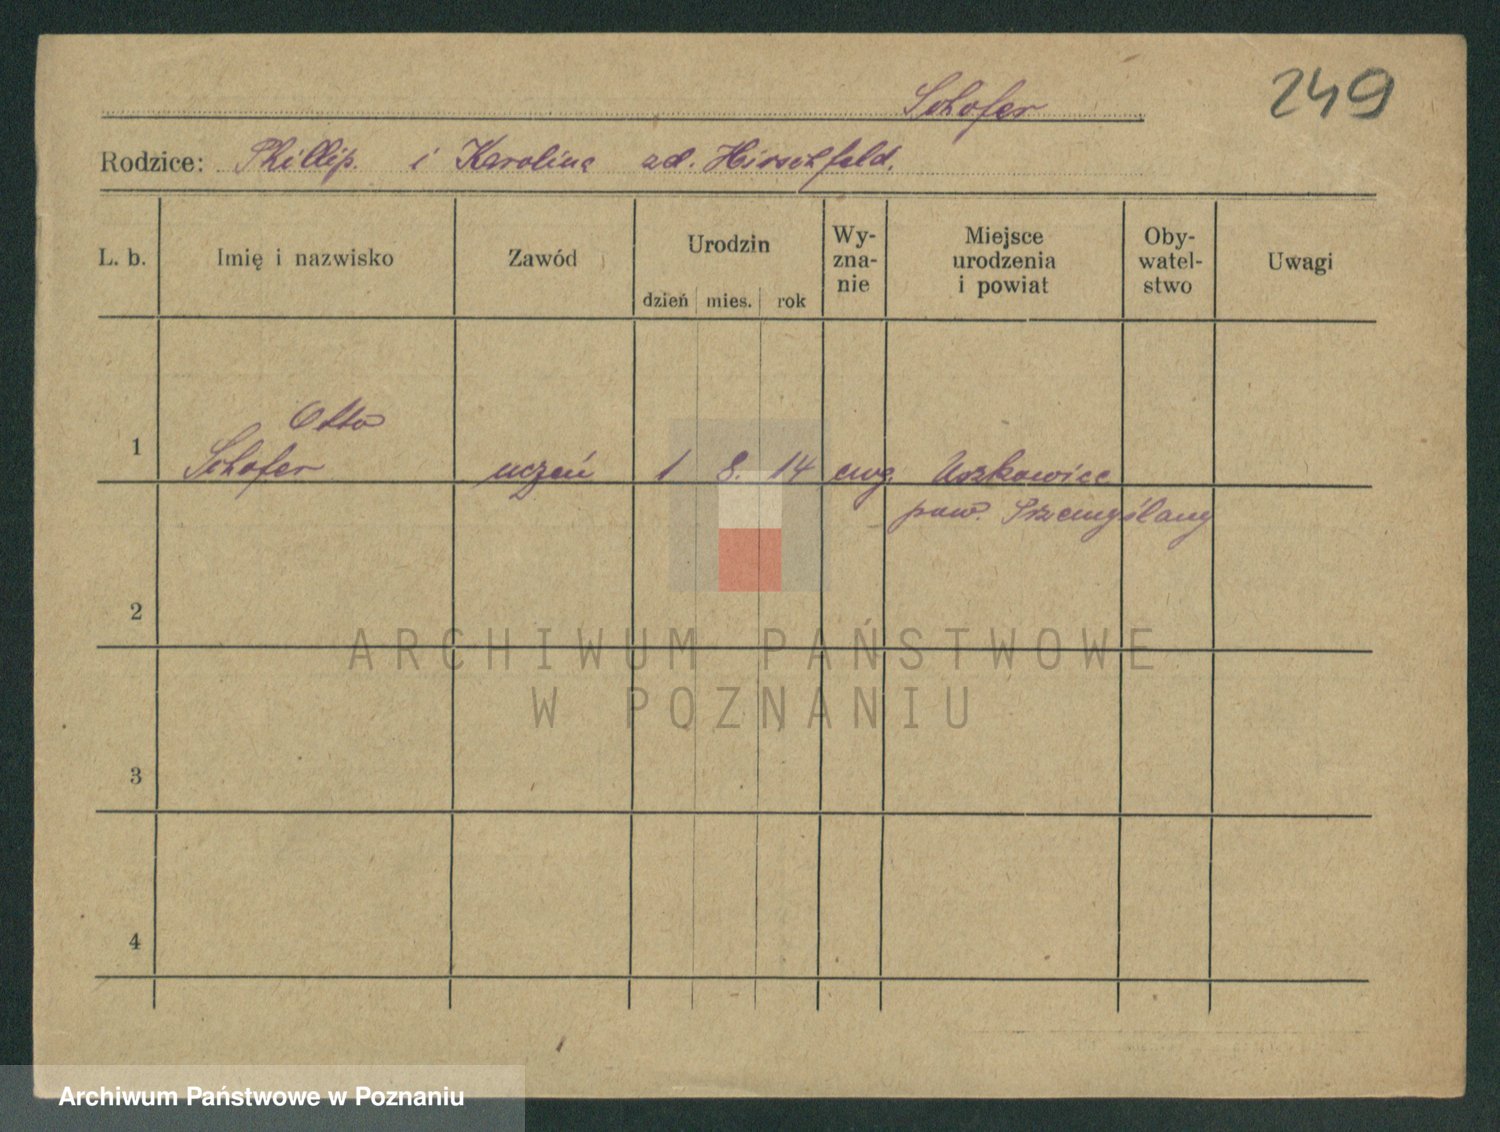 Schofer
249
Rodzice: Phillip i Karolina zd. Hirschfeld.
L. b.
Imię i nazwisko
Zawód
Urodzin
dzień mies. rok
Wy-
zna-
nie
Miejsce
urodzenia
i powiat
Oby-
watel-
stwo
Uwagi
Otto
1 Schofer uczeń 1 8. 14 ewg. Uszkowice
pow. Przemyślany
2
3
4
ARCHIWUM PAŃSTWOWE
W POZNANIU
Archiwum Państwowe w Poznaniu